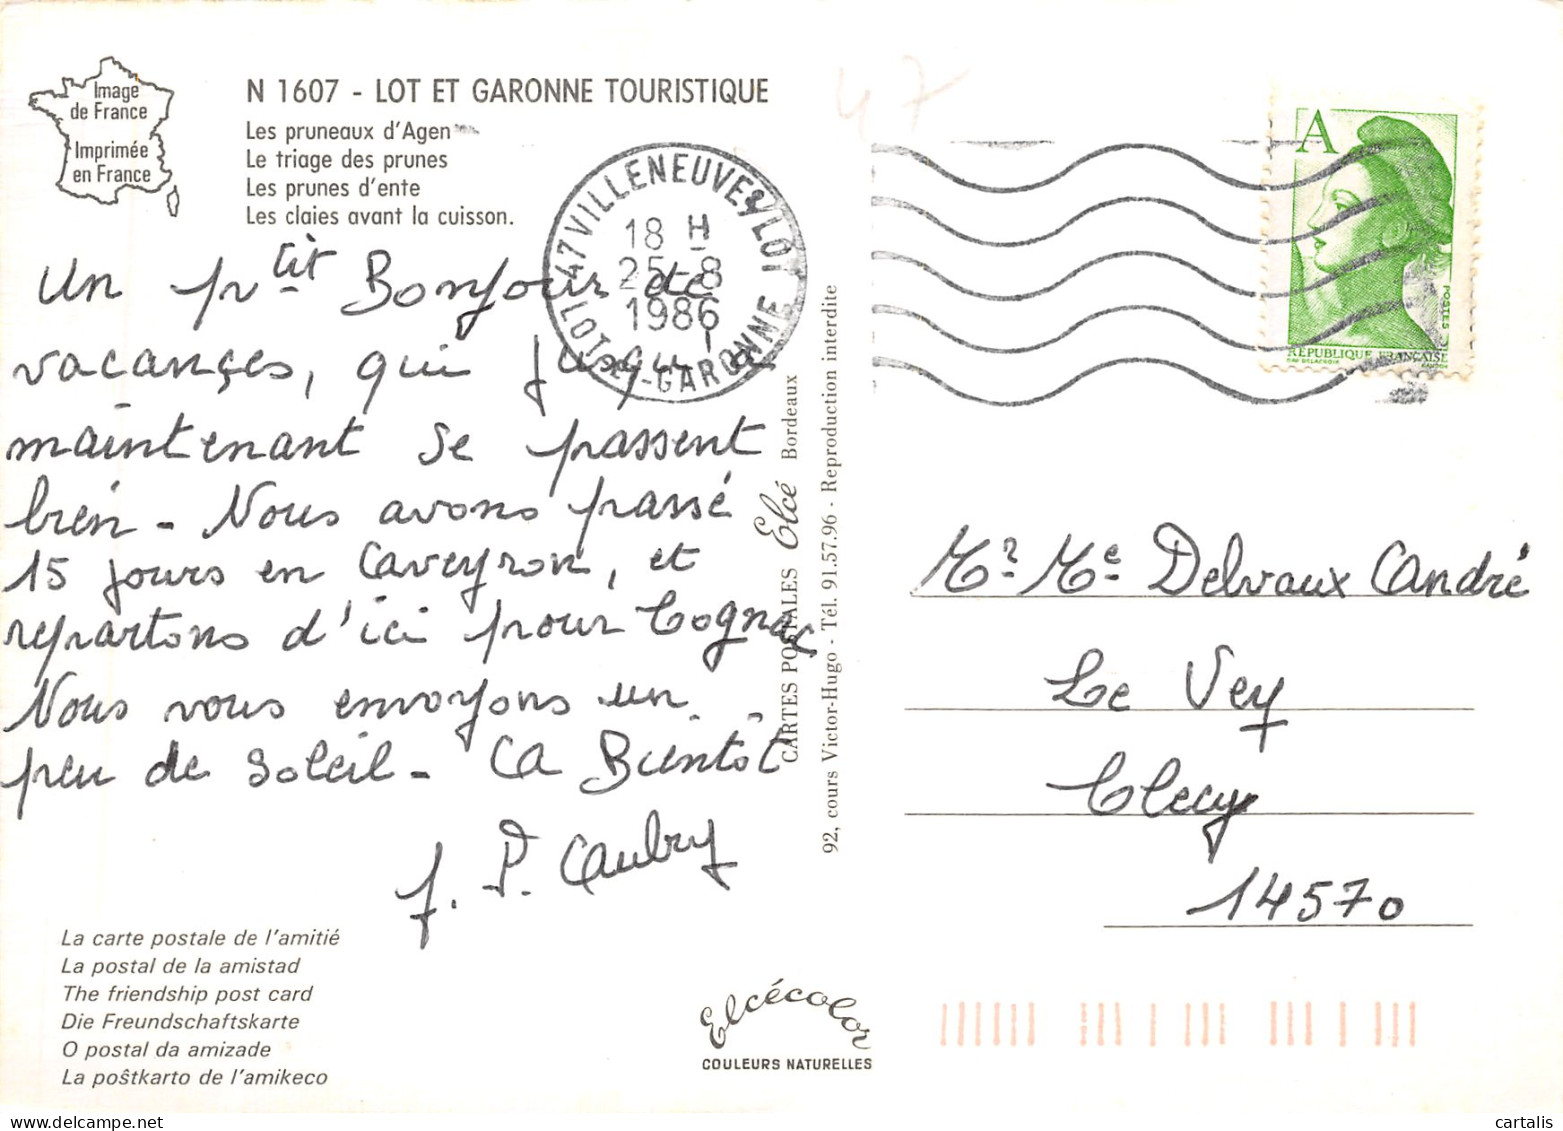 Image
de France
Imprimée
en France
N 1607 - LOT ET GARONNE TOURISTIQUE
Les pruneaux d'Agen
Le triage des prunes
Les prunes d'ente
Les claies avant la cuisson.
47 VILLENEUVE S/LOT
LOT-ET-GARONNE
18 H
25-8
1986
47
A
POSTES
RÉPUBLIQUE FRANÇAISE
Un p'tit Bonjour de
vacances, qui jusqu'à
maintenant se passent
bien - Nous avons passé
15 jours en Aveyron, et
repartons d'ici pour Cognac
Nous vous envoyons un
peu de soleil - A Bientôt
J. P. Aubry
CARTES POSTALES Elcé Bordeaux
92, cours Victor-Hugo - Tél. 91.57.96 - Reproduction interdite
Mr Me Delvaux André
Le Vey
Clecy
14570
La carte postale de l'amitié
La postal de la amistad
The friendship post card
Die Freundschaftskarte
O postal da amizade
La poŝtkarto de l'amikeco
Elcécolor
COULEURS NATURELLES
cartalis